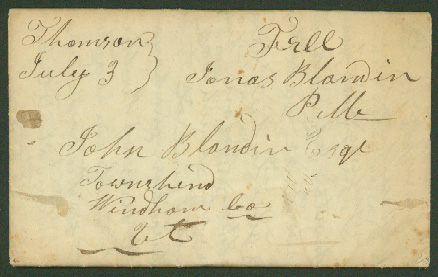 Thomson
July 3
Free
Jonas Blandin
P M
John Blandin Esqr
Townshend
Windham Co
Vt